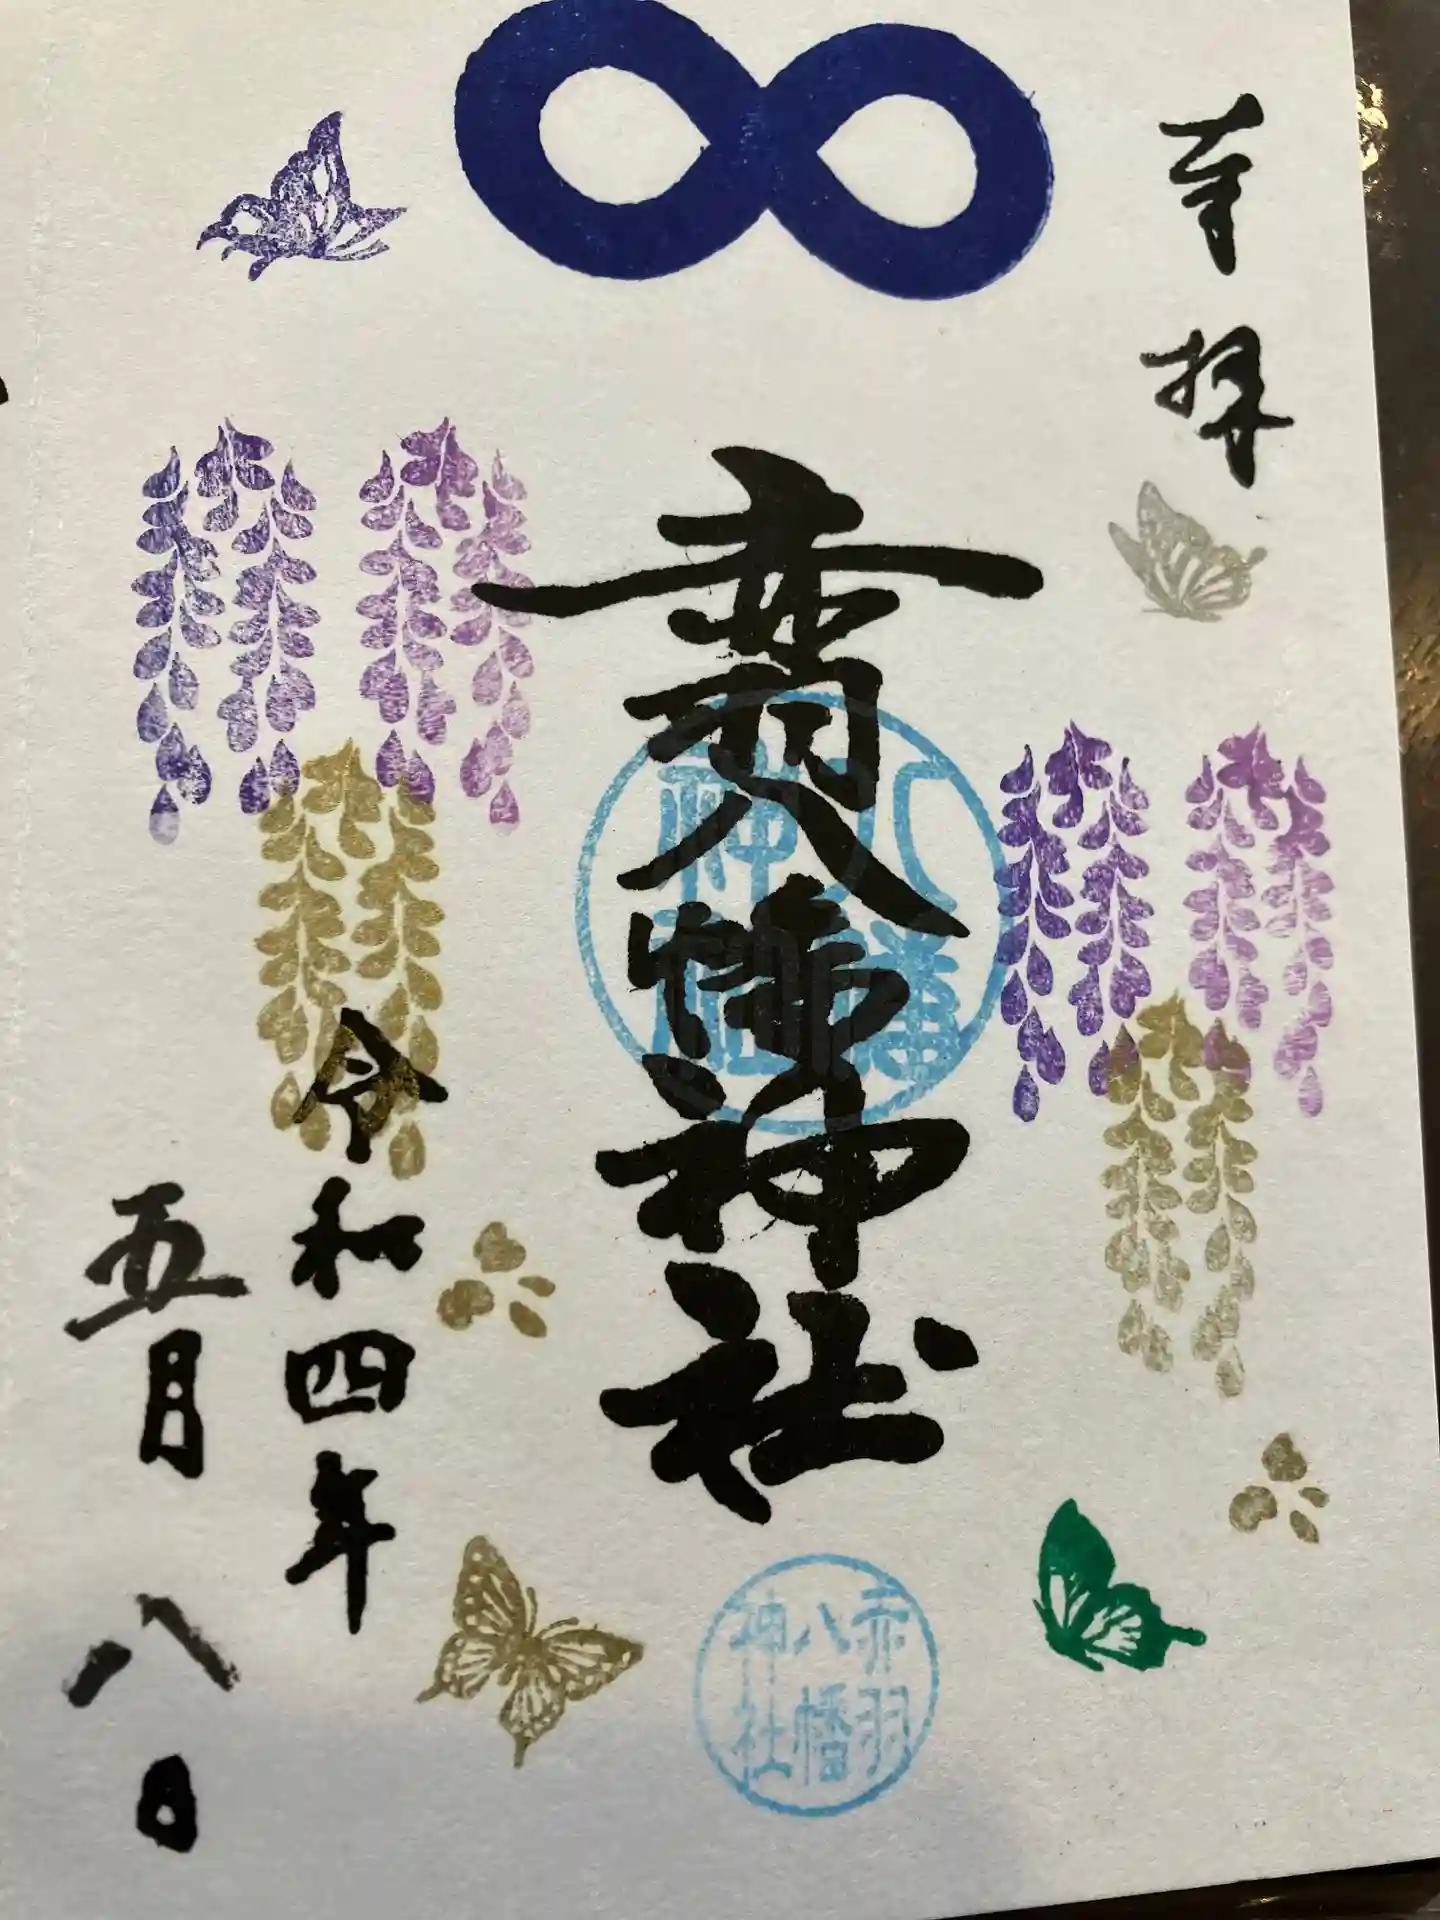 奉拝
赤羽八幡神社
八幡
神社
令和四年
五月八日
赤羽
八幡
神社